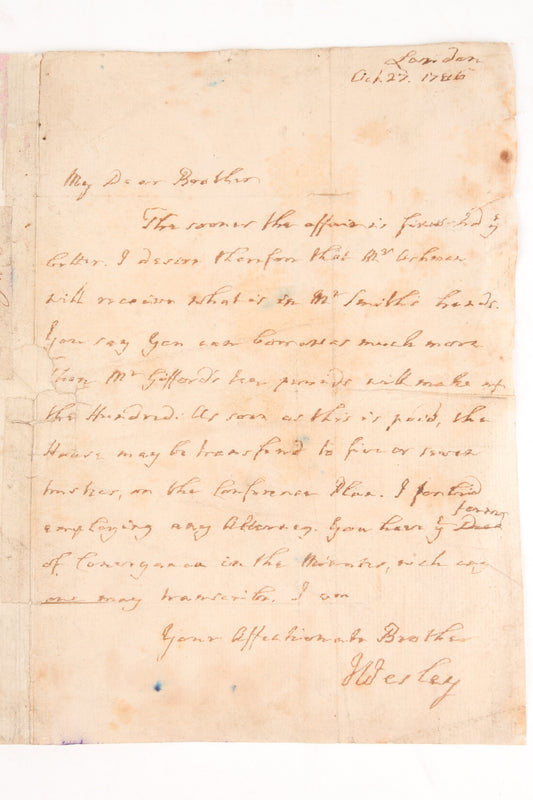 London
Oct. 27. 1786
My Dear Brother
The sooner the affair is finish'd ye
better. I desire therefore that Mr Ashman
will receive what is in Mr Smith's hands.
You say you can borrow as much more.
Then Mr Giffords ten pounds will make up
the Hundred. As soon as this is paid, the
House may be transferd to five or seven
trustees, on the Conference Plan. I forbid
employing any Attorney. You have ye form
of Conveyance in the Minutes, wch any
one may transcribe. I am
Your Affectionate Brother
JWesley